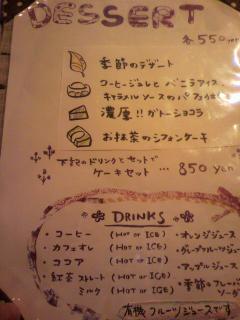 DESSERT
各550yen
季節のデザート
コーヒージュレとバニラアイス
キャラメルソースのパフェ
濃厚!!ガトーショコラ
お抹茶のシフォンケーキ
下記のドリンクとセットで
ケーキセット … 850 yen
DRINKS
・コーヒー (HOT or ICE)
・カフェオレ (HOT or ICE)
・ココア (HOT or ICE)
・紅茶 ストレート (HOT or ICE)
ミルク (HOT or ICE)
・オレンジジュース
・グレープフルーツジュース
・アップルジュース
・季節のフレーバー
ソーダ
有機フルーツジュースです